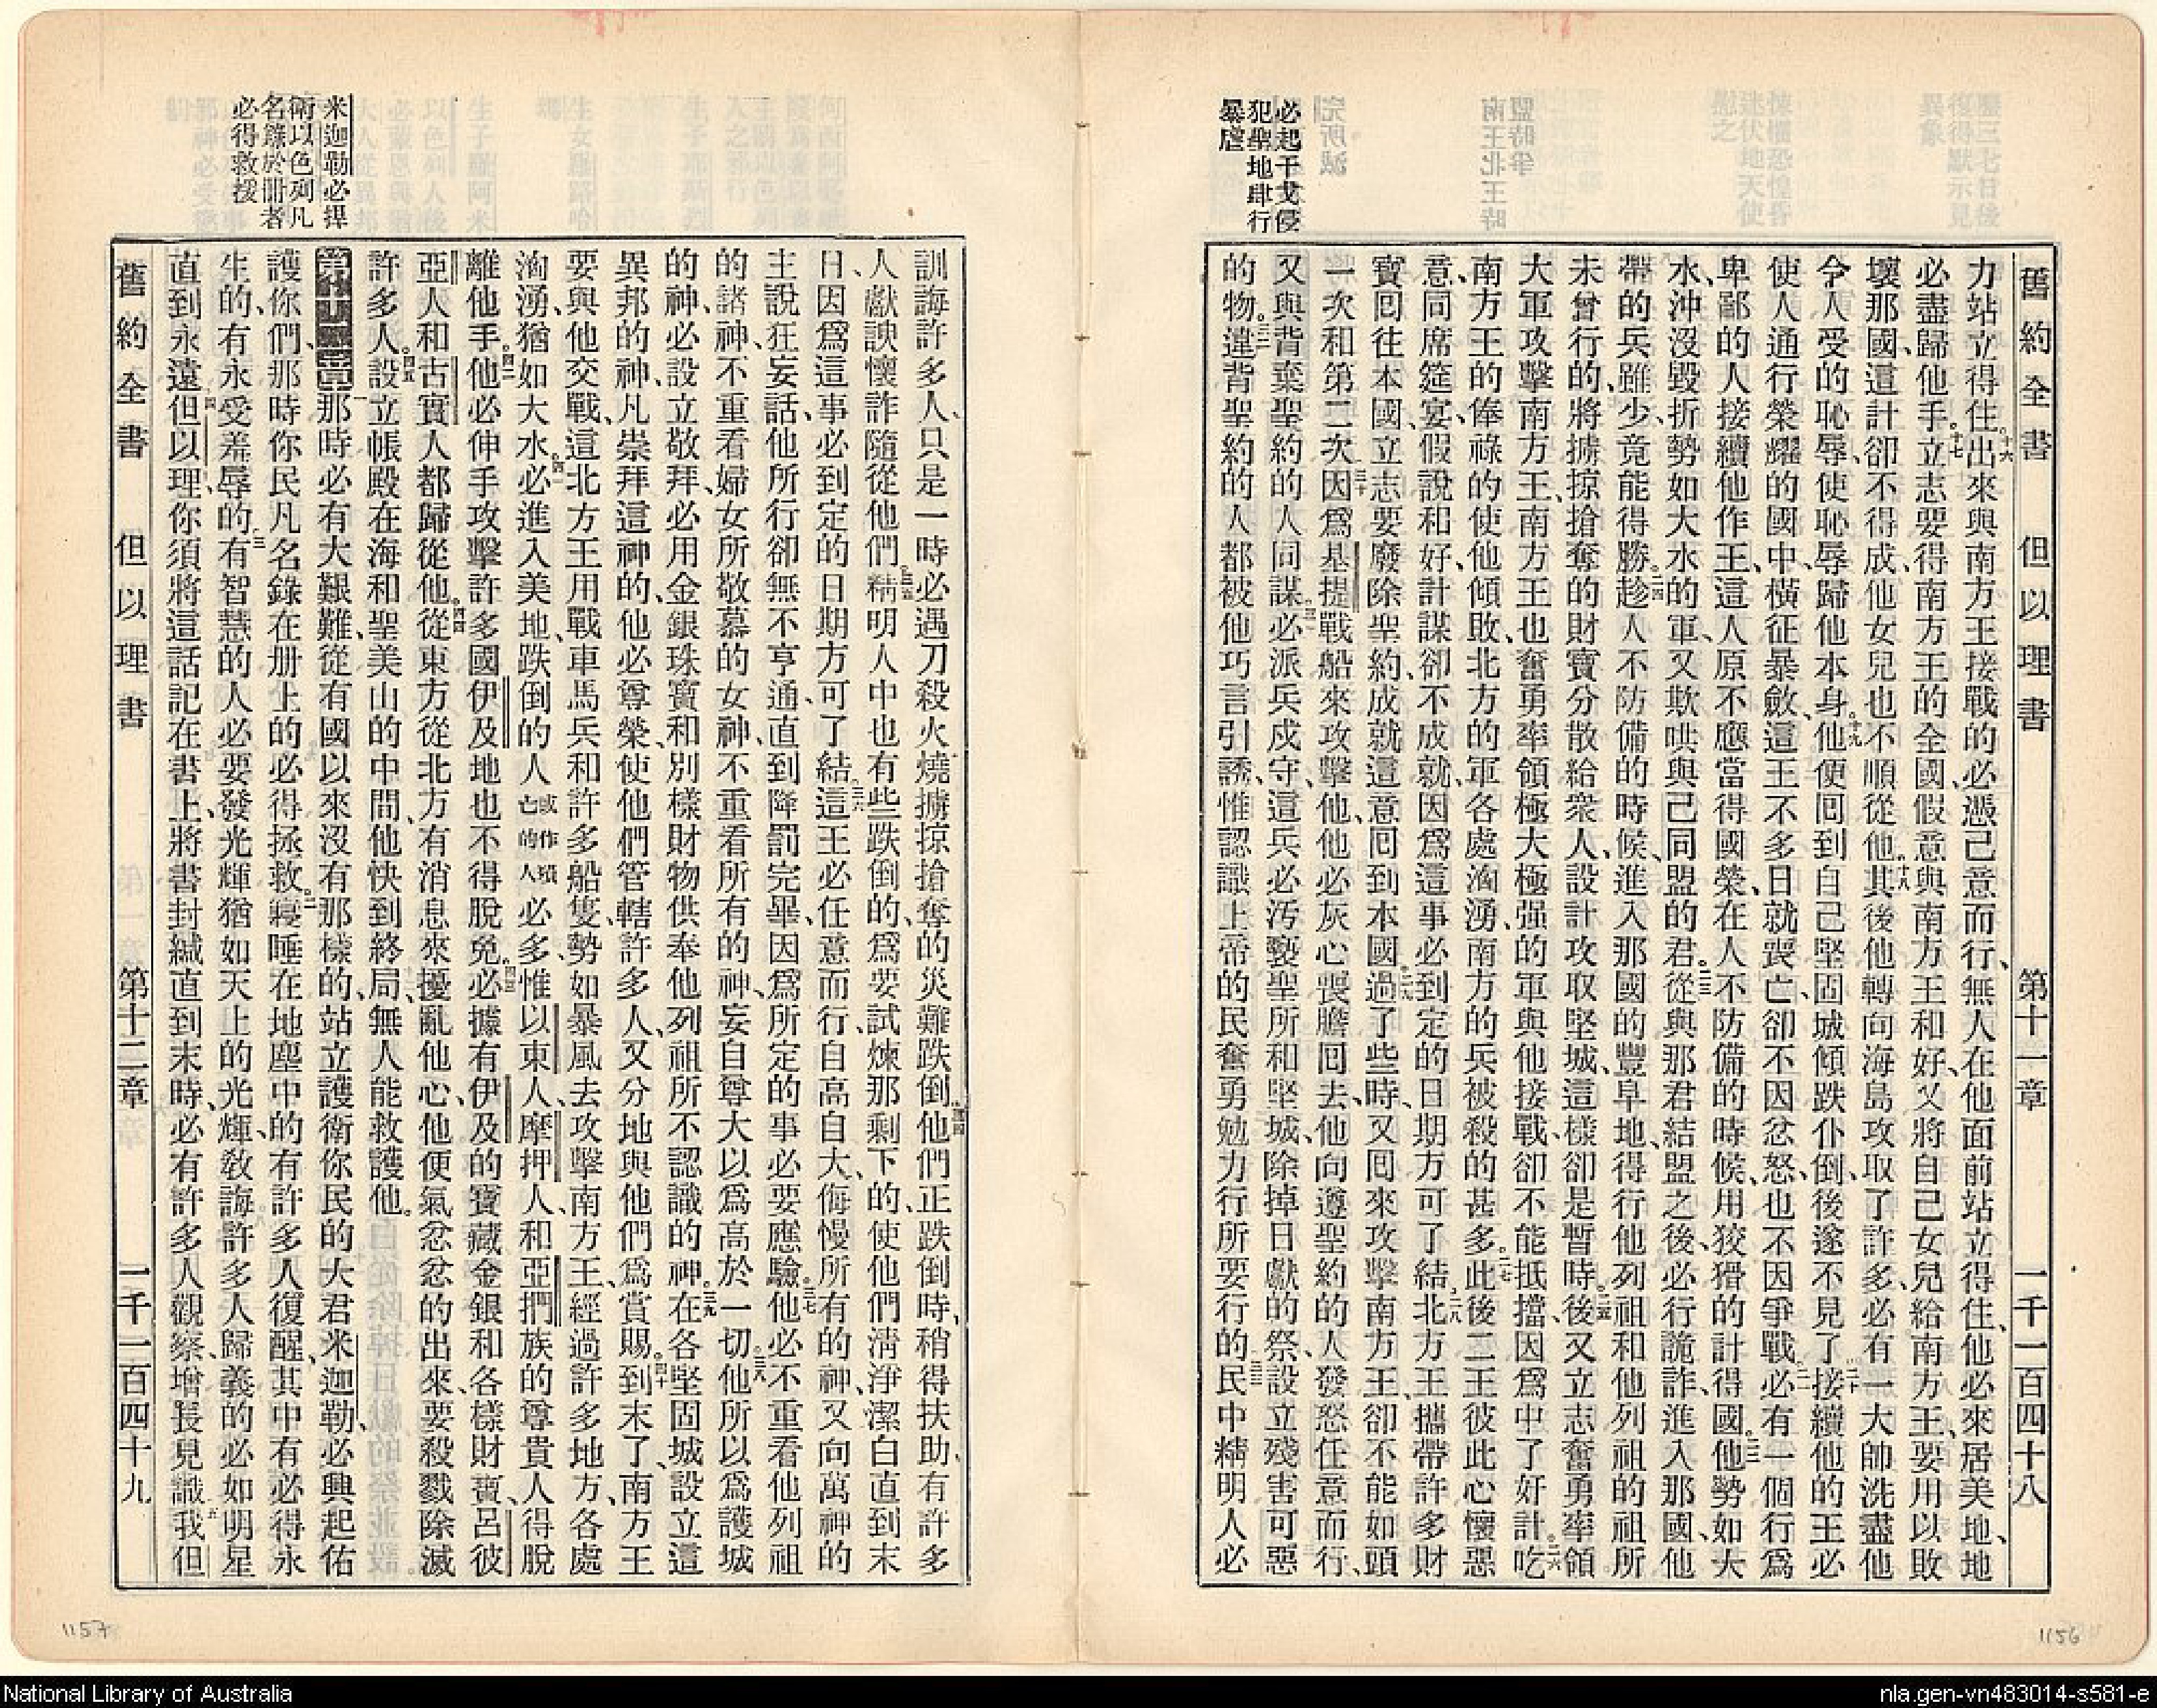 舊約全書 但以理書 第十一章 一千一百四十八
必起干戈侵
犯聖地肆行
暴虐
力站立得住。十六出來與南方王接戰的必憑己意而行、無人在他面前站立得住、他必來居美地、地
必盡歸他手。十七立志要得南方王的全國、假意與南方王和好、又將自己女兒給南方王、要用以敗
壞那國、這計卻不得成、他女兒也不順從他。十八其後他轉向海島攻取了許多、必有一大帥洗盡他
令人受的恥辱、使恥辱歸他本身。十九他便囘到自己堅固城傾跌仆倒、後遂不見了。二十接續他的王必
使人通行榮耀的國中、橫征暴斂、這王不多日就喪亡、卻不因忿怒、也不因爭戰。二一必有一個行爲
卑鄙的人接續他作王、這人原不應當得國榮、在人不防備的時候、用狡猾的計得國。二二他勢如大
水、沖沒毀折勢如大水的軍、又欺哄與己同盟的君。二三從與那君結盟之後、必行詭詐、進入那國、他
帶的兵雖少、竟能得勝。二四趁人不防備的時候、進入那國的豐阜地、得行他列祖和他列祖的祖所
未曾行的、將擄掠搶奪的財寶分散給衆人、設計攻取堅城、這樣卻是暫時。二五後又立志奮勇率領
大軍攻擊南方王、南方王也奮勇率領極大極强的軍與他接戰、卻不能抵擋、因爲中了奸計。二六吃
南方王的俸祿的使他傾敗、北方的軍各處洶湧、南方的兵被殺的甚多。二七此後二王彼此心懷惡
意、同席筵宴、假說和好、計謀卻不成就、因爲這事必到定的日期方可了結。二八北方王攜帶許多財
寶囘往本國、立志要廢除聖約、成就這意囘到本國。二九過了些時、又囘來攻擊南方王、卻不能如頭
一次和第二次。三十因爲基提戰船來攻擊他、他必灰心喪膽囘去、他向遵聖約的人發怒任意而行、
又與背棄聖約的人同謀。三一必派兵戍守、這兵必汚褻聖所和堅城、除掉日獻的祭、設立殘害可惡
的物。三二違背聖約的人都被他巧言引誘、惟認識上帝的民奮勇勉力行所要行的。三三民中精明人必
1156
米迦勒必捍
衛以色列凡
名錄於册者
必得救援
訓誨許多人、只是一時必遇刀殺火燒擄掠搶奪的災難跌倒。三四他們正跌倒時、稍得扶助、有許多
人獻諛懷詐隨從他們。三五精明人中也有些跌倒的、爲要試煉那剩下的、使他們淸淨潔白直到末
日、因爲這事必到定的日期方可了結。三六這王必任意而行、自高自大、侮慢所有的神、又向萬神的
主說狂妄話、他所行卻無不亨通、直到降罰完畢、因爲所定的事必要應驗。三七他必不重看他列祖
的諸神、不重看婦女所敬慕的女神、不重看所有的神、妄自尊大以爲高於一切。三八他所以爲護城
的神、必設立敬拜、必用金銀珠寶和別樣財物供奉他列祖所不認識的神。三九在各堅固城、設立這
異邦的神、凡崇拜這神的、他必尊榮、使他們管轄許多人、又分地與他們爲賞賜。四十到末了、南方王
要與他交戰、這北方王用戰車馬兵和許多船隻、勢如暴風去攻擊南方王、經過許多地方、各處
洶湧、猶如大水。四一必進入美地、跌倒的人或作殞亡的人必多、惟以東人、摩押人、和亞捫族的尊貴人得脫
離他手。四二他必伸手攻擊許多國、伊及地也不得脫免。四三必據有伊及的寶藏金銀和各樣財寶、呂彼
亞人和古實人都歸從他。四四從東方從北方有消息來擾亂他心、他便氣忿忿的出來、要殺戮除滅
許多人。四五設立帳殿在海和聖美山的中間、他快到終局、無人能救護他。
第十二章 一那時必有大艱難、從有國以來沒有那樣的、站立護衛你民的大君米迦勒必興起佑
護你們、那時你民凡名錄在册上的必得拯救。二寢睡在地塵中的有許多人復醒、其中有必得永
生的、有永受羞辱的。三有智慧的人必要發光輝猶如天上的光輝、敎誨許多人歸義的必如明星
直到永遠。四但以理、你須將這話記在書上、將書封緘直到末時、必有許多人觀察、增長見識。五我但
舊約全書 但以理書 第十二章 一千一百四十九
1157
National Library of Australia
nla.gen-vn483014-s581-e